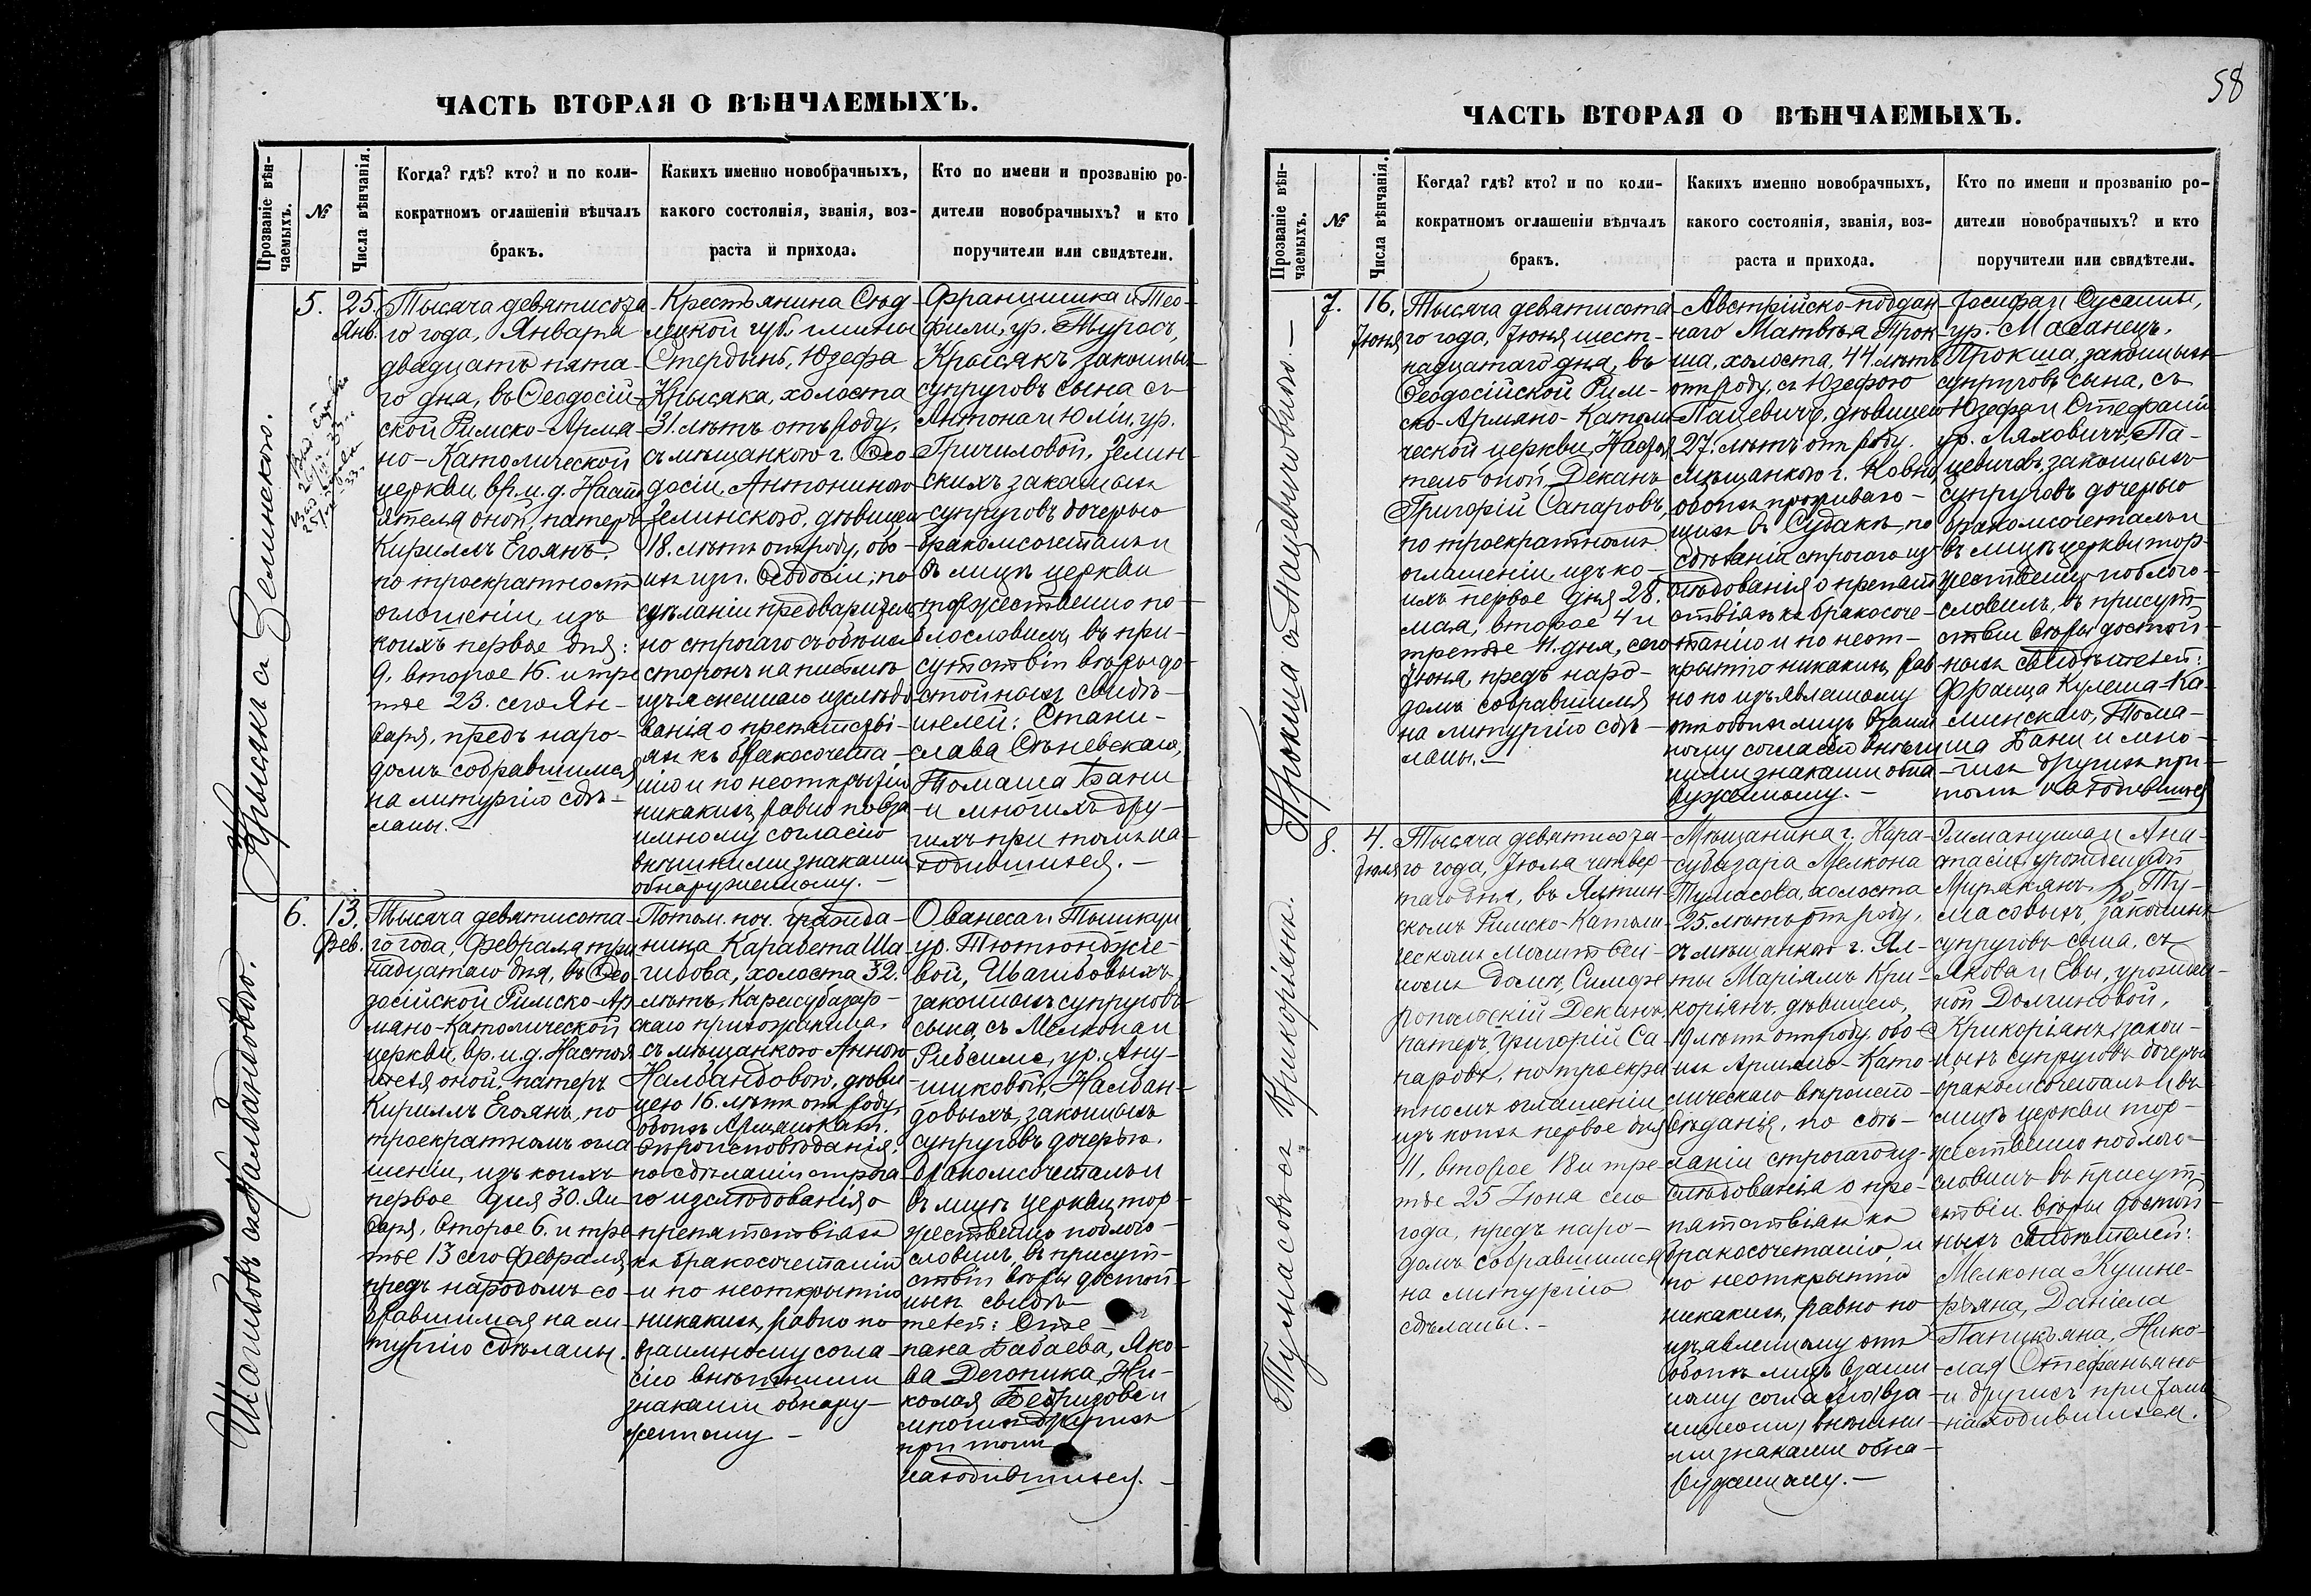 ЧАСТЬ ВТОРАЯ О ВѢНЧАЕМЫХЪ.
Прозваніе вѣн-
чаемыхъ.
№
Числа вѣнчанія.
Когда? гдѣ? кто? и по коли-
кократномъ оглашеніи вѣнчалъ
бракъ.
Какихъ именно новобрачныхъ,
какого состоянія, званія, воз-
раста и прихода.
Кто по имени и прозванію ро-
дители новобрачныхъ? и кто
поручители или свидѣтели.
Крысякъ съ Зелинскою.
5.
25.
Янв.
Тысяча девятисота-
го года, Января
двадцать пята-
го дня, въ Ѳеодосій-
ской Римско-Армя-
но-Католической
церкви вр. и. д. Насто-
ятеля оной, патеръ
Кириллъ Егоянъ,
по троекратномъ
оглашеніи, изъ
коихъ первое дня:
9. второе 16. и тре
тье 23. сего Ян-
варя, предъ наро-
домъ собравшимся
на литургію сдѣ-
ланы.-
Крестьянина Сѣд-
лецкой губ. гмины
Стердынь, Юзефа
Крысяка, холоста
31. лѣтъ отъ роду,
съ мѣщанкою г. Ѳео-
досіи, Антониною
Зелинскою, дѣвицею
18. лѣтъ отъ роду, обо-
ихъ изъ г. Ѳеодосіи; по
сдѣланіи предваритель
но строгаго съ обѣихъ
сторонъ на письмѣ
изъясненнаго изслѣдо
ванія о препятстві-
яхъ къ бракосочета-
нію и по неоткрытію
никакихъ, равно по вза
имному согласію
внѣшними знаками
обнаруженному.-
Францишка и Тео-
фили, ур. Тургосъ,
Крысякъ законныхъ
супруговъ сына съ
Антона и Юліи, ур.
Гричиловой, Зелин-
скихъ законныхъ
супруговъ дочерью
бракомъ сочеталъ и
въ лицѣ церкви
торжественно по-
благословилъ, въ при-
сутствіи вѣры до-
стойныхъ свидѣ-
телей: Стани-
слава Сѣневскаго,
Томаша Бани
и многихъ дру-
гихъ при томъ на-
ходившихся.-
Шагибовъ съ Налбандовою.
6.
13.
Фев.
Тысяча девятисота-
го года, Февраля три
надцатаго дня, въ Ѳео-
досійской Римско-Ар-
мяно-Католической
церкви, вр. и. д. Настоя
теля оной, патеръ
Кириллъ Егоянъ, по
троекратномъ огла
шеніи, изъ коихъ
первое дня 30. Ян-
варя, второе 6. и тре
тье 13 сего Февраля,
предъ народомъ со-
бравшимся на ли-
тургію сдѣланы.
Потом. поч. гражда-
нина Карабета Ша-
гибова, холоста 32.
лѣтъ, Карасубазар-
скаго прихожанина,
съ мѣщанкою Анною
Налбандовою, дѣви
цею 16. лѣтъ отъ роду,
обоихъ Армянокат.
вѣроисповѣданія;
по сдѣланіи строга
го изслѣдованія о
препятствіяхъ
къ бракосочетанію
и по неоткрытію
никакихъ, равно по
взаимному согла-
сію внѣшними
знаками обнару-
женному -
Ованеса и
ур. Тютюнджіе-
вой, Шагибовыхъ
законныхъ супруговъ
сына, съ Мелкона и
Рибсиме, ур. Ану-
шиковой, Налбан-
довыхъ, законныхъ
супруговъ дочерью.
бракомъ сочеталъ и
въ лицѣ церкви тор-
жественно поблаго-
словилъ, въ присут-
ствіи вѣры достой-
ныхъ свидѣ-
телей: Сте-
пана Бабаева, Яко-
ва Дегоника, Ни-
колая и
многихъ другихъ
при томъ
находившихся.-
58
ЧАСТЬ ВТОРАЯ О ВѢНЧАЕМЫХЪ.
Прозваніе вѣн-
чаемыхъ.
№
Числа вѣнчанія.
Когда? гдѣ? кто? и по коли-
кократномъ оглашеніи вѣнчалъ
бракъ.
Какихъ именно новобрачныхъ,
какого состоянія, званія, воз-
раста и прихода.
Кто по имени и прозванію ро-
дители новобрачныхъ? и кто
поручители или свидѣтели.
Прокша съ Пацевичовною.-
7.
16.
Іюня
Тысяча девятисота
го года, Іюня шест-
надцатаго дня, въ
Ѳеодосійской Рим-
ско-Армяно-Католи
ческой церкви, Настоя
тель оной, Деканъ
Григорій Сапаровъ,
по троекратномъ
оглашеніи, изъ ко-
ихъ первое дня 28.
мая, второе 4 и
третье 11. дня, сего
Іюня, предъ наро-
домъ собравшимся
на литургію сдѣ-
ланы.-
Австрійско-поддан
наго Матвѣя Прок-
ша, холоста, 44 лѣтъ
отъ роду, съ Юзефою
Пацевичъ, дѣвицею
27. лѣтъ отъ роду.
мѣщанкою г. Ковно,
обоихъ проживаю-
щихъ въ Судакѣ, по
сдѣланіи строгаго из-
слѣдованія о препят
ствіяхъ къ бракосоче-
танію и по неот-
крытію никакихъ, рав
но по изъявленному
отъ обоихъ лицъ взаим
ному согласію внѣш
ними знаками обна
руженному.-
Іосифа и Сусанны,
ур. Маланецъ,
Прокша, законныхъ
супруговъ сына, съ
Юзефа и Стефаніи
ур. Ляховичъ, Па-
цевичовъ, законныхъ
супруговъ дочерью
бракомъ сочеталъ и
въ лицѣ церкви тор-
жественно поблаго-
словилъ, въ присут-
ствіи вѣры достой-
ныхъ свидѣтелей:
Франца Кулеша-Ка-
минскаго, Тома-
ша Бани и мно-
гихъ другихъ при
томъ находившихся
Тумасовъ съ Крикоріянъ.
8.
4.
Іюля
Тысяча девятисота-
го года, Іюля четвер
таго дня, въ Ялтин-
скомъ Римско-Католи
ческомъ Молитвен-
номъ Домѣ, Симфе
ропольскій Деканъ,
патеръ Григорій Са
паровъ, по троекра
тномъ оглашеніи
изъ коихъ первое дня
11, второе 18 и тре-
тье 25 Іюня сего
года, предъ наро-
домъ собравшимся
на литургію
сдѣланы.-
Мѣщанина г. Кара-
субазара Мелкона
Тумасова, холоста
25. лѣтъ отъ роду,
съ мѣщанкою г. Ял-
ты Маріямъ Кри-
коріянъ, дѣвицею,
19 лѣтъ отъ роду, обо-
ихъ Армяно-Като-
лическаго вѣроиспо-
вѣданія, по сдѣ-
ланіи строгаго из-
слѣдованія о пре-
пятствіяхъ къ
бракосочетанію и
по неоткрытію
никакихъ, равно по
изъявленному отъ
обоихъ лицъ взаим
ному согласію (вза
имному) внѣшни-
ми знаками обна-
руженному.-
Эммануила и Ана-
стасіи, урожденной
Миракянъ, Ту-
масовыхъ, законныхъ
супруговъ сына, съ
Якова и Евы, урожден-
ной Долгиновой,
Крикоріянъ, закон-
ныхъ супруговъ дочерью
бракомъ сочеталъ и въ
лицѣ церкви тор-
жественно поблаго-
словилъ въ присут-
ствіи вѣры достой-
ныхъ свидѣтелей:
Мелкона Кушне-
ряна, Даніела
Папикьяна, Нико-
лая Стефаньяно
и другихъ при томъ
находившихся.